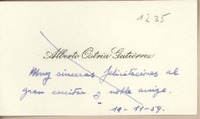 1235
Alberto Ostria Gutiérrez
Muy sinceras felicitaciones al
gran escritor y noble amigo.
10-11-59.